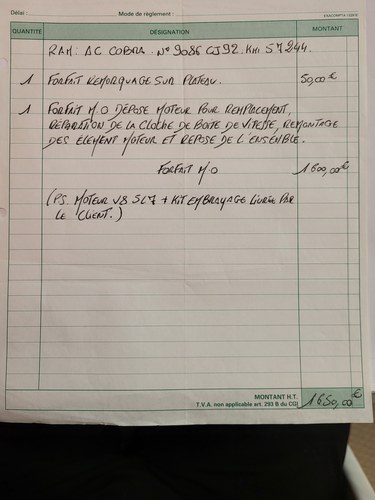 Délai : Mode de règlement :
QUANTITÉ DÉSIGNATION MONTANT
RAM: AC COBRA. N° 9086 CJ92. KMS 57244.
1 FORFAIT REMORQUAGE SUR PLATEAU. 50,00 €
1 FORFAIT M.O DÉPOSE MOTEUR POUR REMPLACEMENT,
RÉPARATION DE LA CLOCHE DE BOITE DE VITESSE, REMONTAGE
DES ÉLEMENT MOTEUR ET REPOSE DE L'ENSEMBLE.
FORFAIT M.O 1600,00 €
(PS. MOTEUR V8 5L7 + KIT EMBRAYAGE LIVRÉE PAR
LE CLIENT.)
MONTANT H.T.
T.V.A. non applicable art. 293 B du CGI 1650,00 €